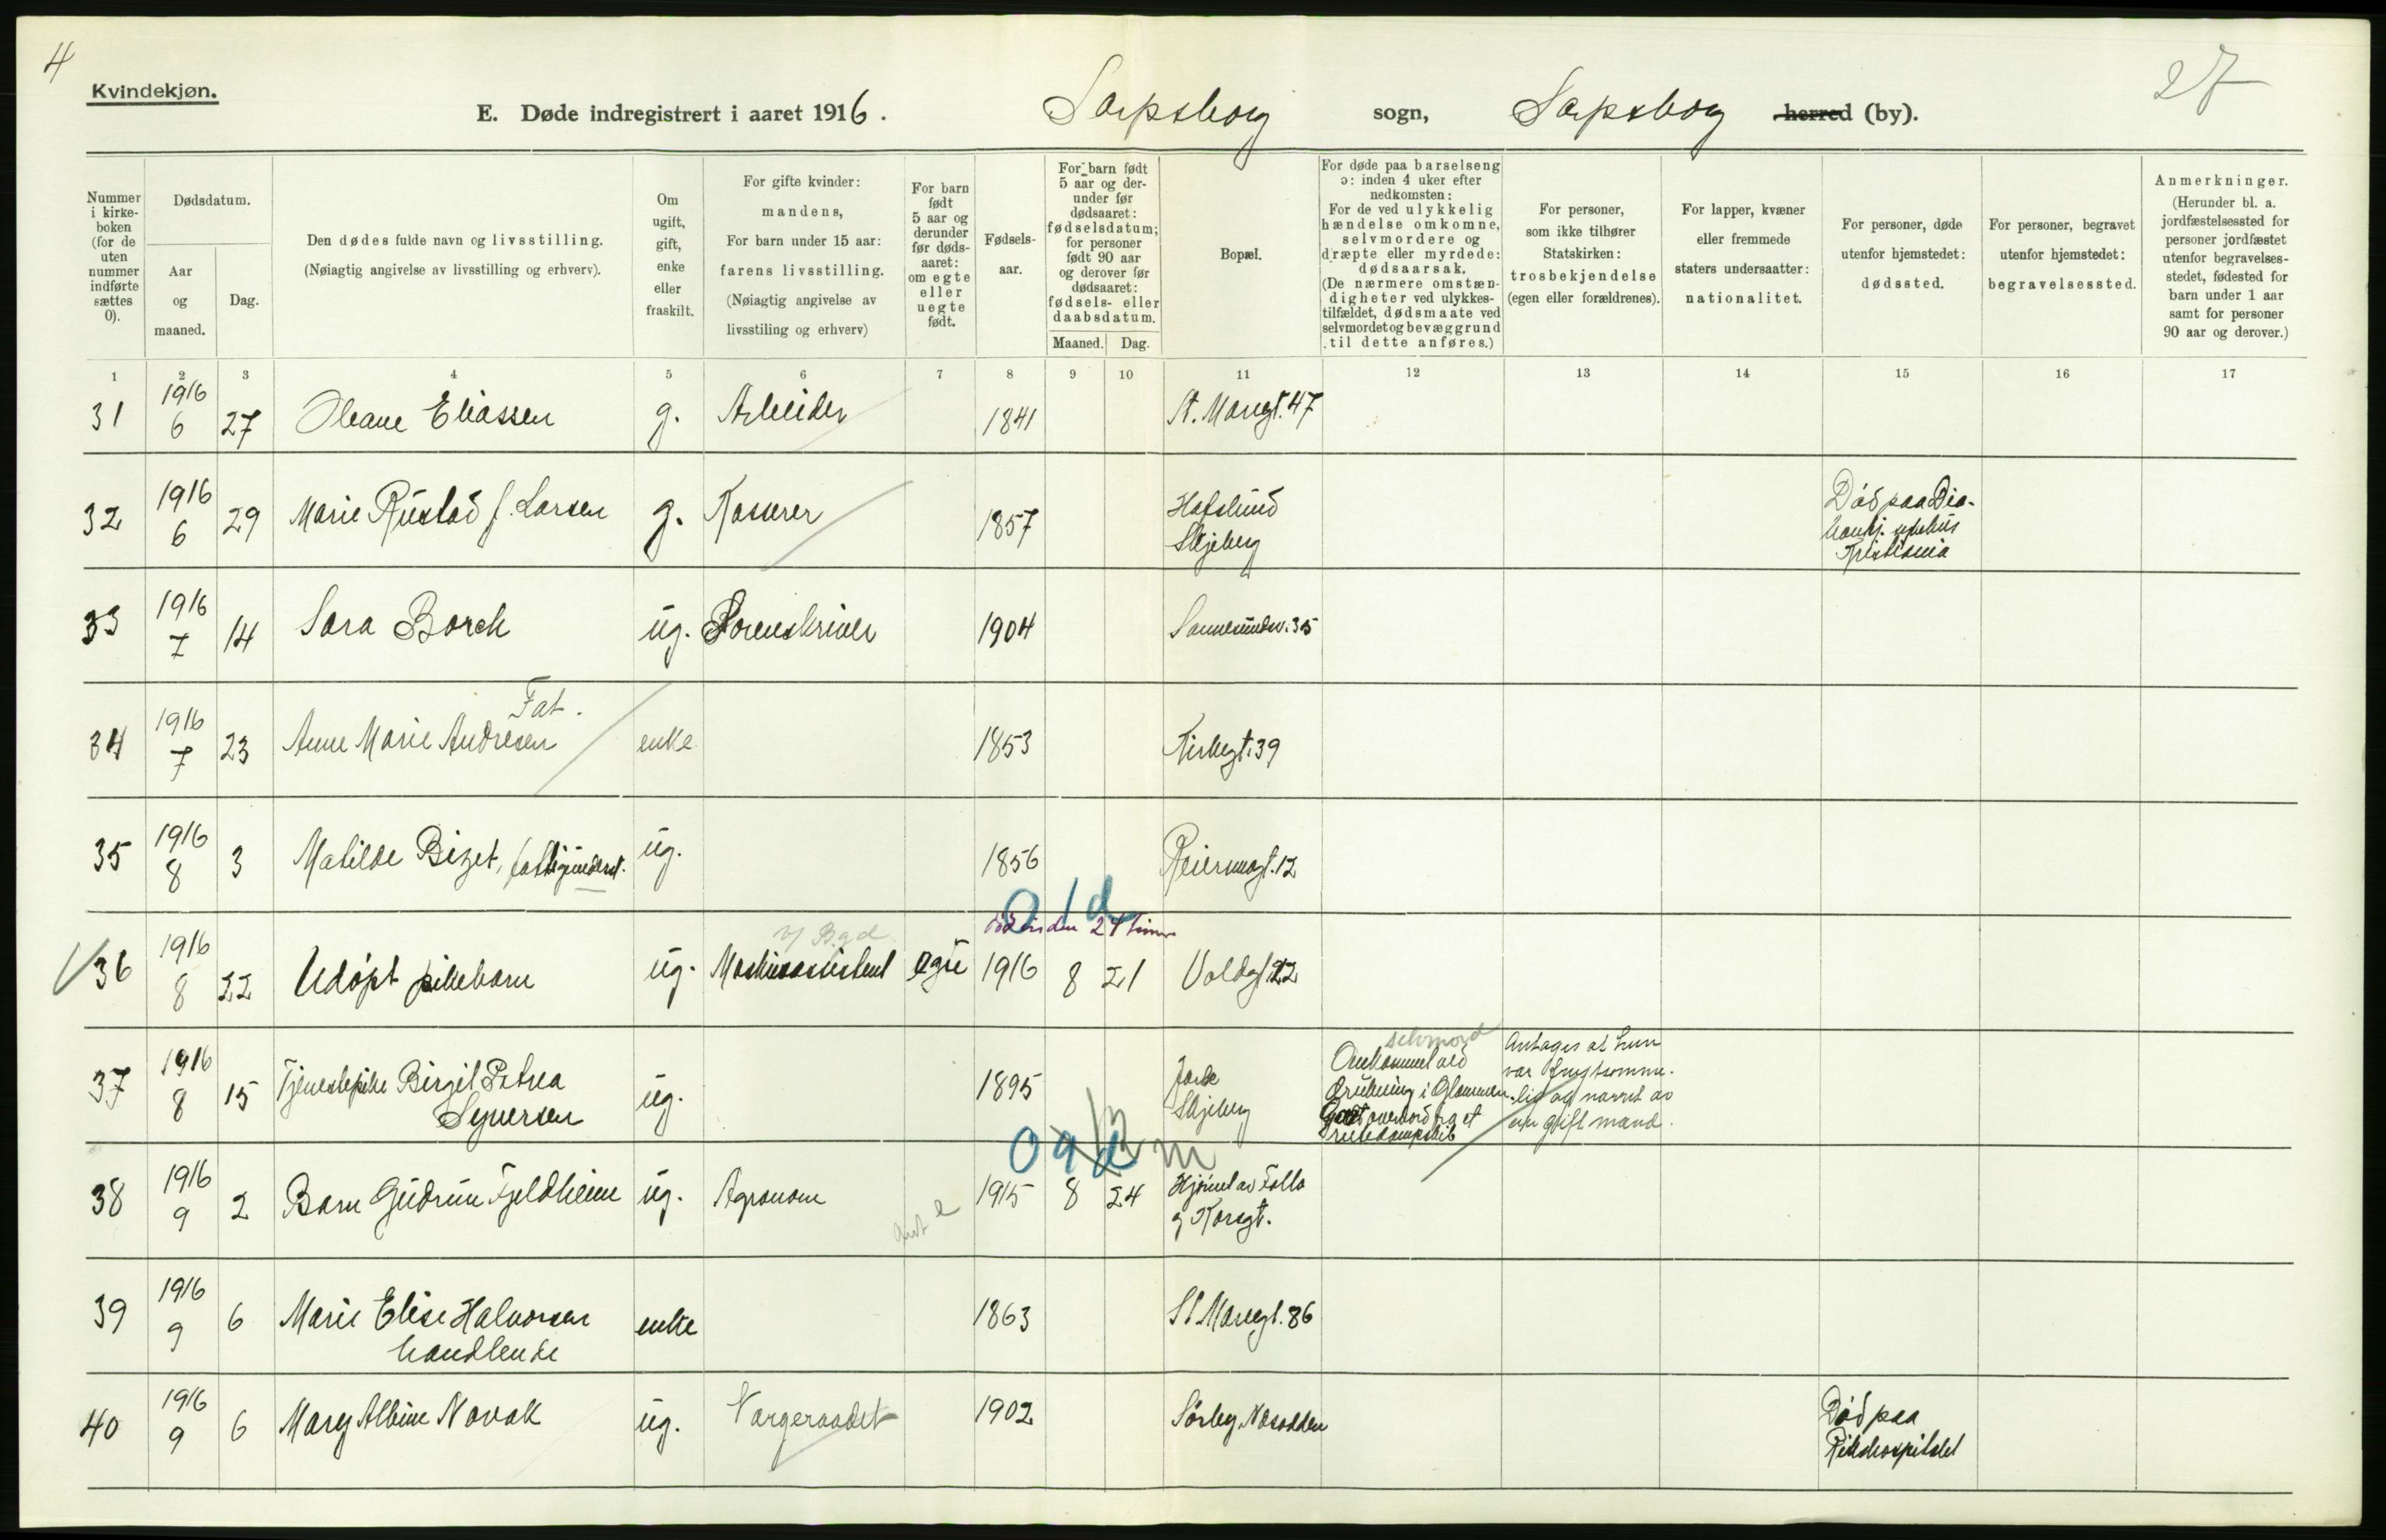 4
27
Kvindekjøn.
E. Døde indregistrert i aaret 1916. Sarpsborg sogn, Sarpsborg herred (by).
Nummer i kirke- boken (for de uten nummer indførte sættes 0).
Dødsdatum.
Aar og maaned.
Dag.
Den dødes fulde navn og livsstilling.
(Nøiagtig angivelse av livsstilling og erhverv).
Om ugift, gift, enke eller fraskilt.
For gifte kvinder:
mandens,
For barn under 15 aar:
farens livsstilling.
(Nøiagtig angivelse av
livsstiling og erhverv)
For barn født 5 aar og derunder før døds- aaret: om egte eller uegte født.
Fødsels- aar.
For barn født 5 aar og der- under før dødsaaret: fødselsdatum; for personer født 90 aar og derover før dødsaaret: fødsels- eller daabsdatum.
Maaned. Dag.
Bopæl.
For døde paa barselseng
ɔ: inden 4 uker efter
nedkomsten:
For de ved ulykkelig
hændelse omkomne,
selvmordere og
dræpte eller myrdede:
dødsaarsak.
(De nærmere omstæn-
digheter ved ulykkes-
tilfældet, dødsmaate ved
selvmordet og bevæggrund
til dette anføres.)
For personer,
som ikke tilhører
Statskirken:
trosbekjendelse
(egen eller forældrenes).
For lapper, kvæner
eller fremmede
staters undersaatter:
nationalitet.
For personer, døde
utenfor hjemstedet:
dødssted.
For personer, begravet
utenfor hjemstedet:
begravelsessted.
Anmerkninger.
(Herunder bl. a.
jordfæstelsessted for
personer jordfæstet
utenfor begravelses-
stedet, fødested for
barn under 1 aar
samt for personer
90 aar og derover.)
1 2 3 4 5 6 7 8 9 10 11 12 13 14 15 16 17
31 1916 6 27 Oleane Eliassen g. Arbeider 1841 St. Mariegt. 47
32 1916 6 29 Marie Rustad f. Larsen g. Kasserer 1857 Hafslund
Skjeberg
Död paa Dia-
Kristiania
33 1916 7 14 Sara Borch ug. Sorenskriver 1904 Sannesundsv. 35
Fat.
34 1916 7 23 Anne Marie Andresen enke 1853 Kirkegt. 39
35 1916 8 3 Matilde Bizet, fattigunderst. ug. 1856 Reiermosgt. 12
0 1 d
död inden 24 timer
36 1916 8 22 Udöpt pikebarn ug. Maskinassistent egte 1916 8 21 Voldgt. 22
selvmord
37 1916 8 15 Tjenestepike Birgit Petrea
Syversen
ug. 1895
Skjeberg
Omkommet ved
drukning i Glommen.
Gaat overbord fra et
rutedampskib
Antages at hun
var frugtsomme-
lig og narret av
en gift mand.
0 9 d
m
38 1916 9 2 Barn Gudrun Fjeldheim ug. Agronom ant e 1915 8 24 Hjörnet av Follo
g Korsgt.
39 1916 9 6 Marie Elise Halvorsen
handlende
enke 1863 St Mariegt. 86
40 1916 9 6 Mary Albine Novak ug. Vargeraadet 1902 Sörby, Nesodden
Död paa
Rikshospitalet